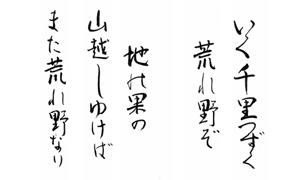 いく千里つづく
荒れ野ぞ
地の果の
山越しゆけば
また荒れ野なり